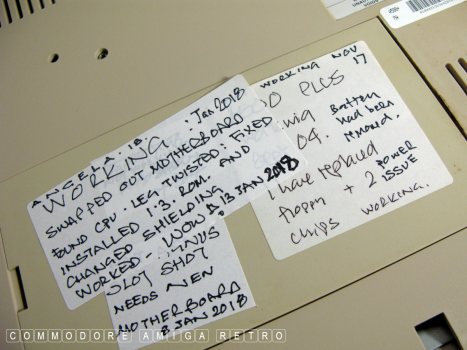 ANGELA. 18.
WORKING : Jan 2018
SWAPPED OUT MOTHERBOARD
FOUND CPU LEG TWISTED: FIXED
INSTALLED 1.3. ROM. AND
CHANGED SHIELDING
WORKED - WOW 13 JAN 2018
SLOT SHOT
NEEDS NEW
MOTHERBOARD
8 JAN 2018
WORKING NOV
17
PLUS
04.
Battery
had been
removed.
i have replaced
floppy + 2
POWER
ISSUE
chips WORKING.
COMMODORE AMIGA RETRO